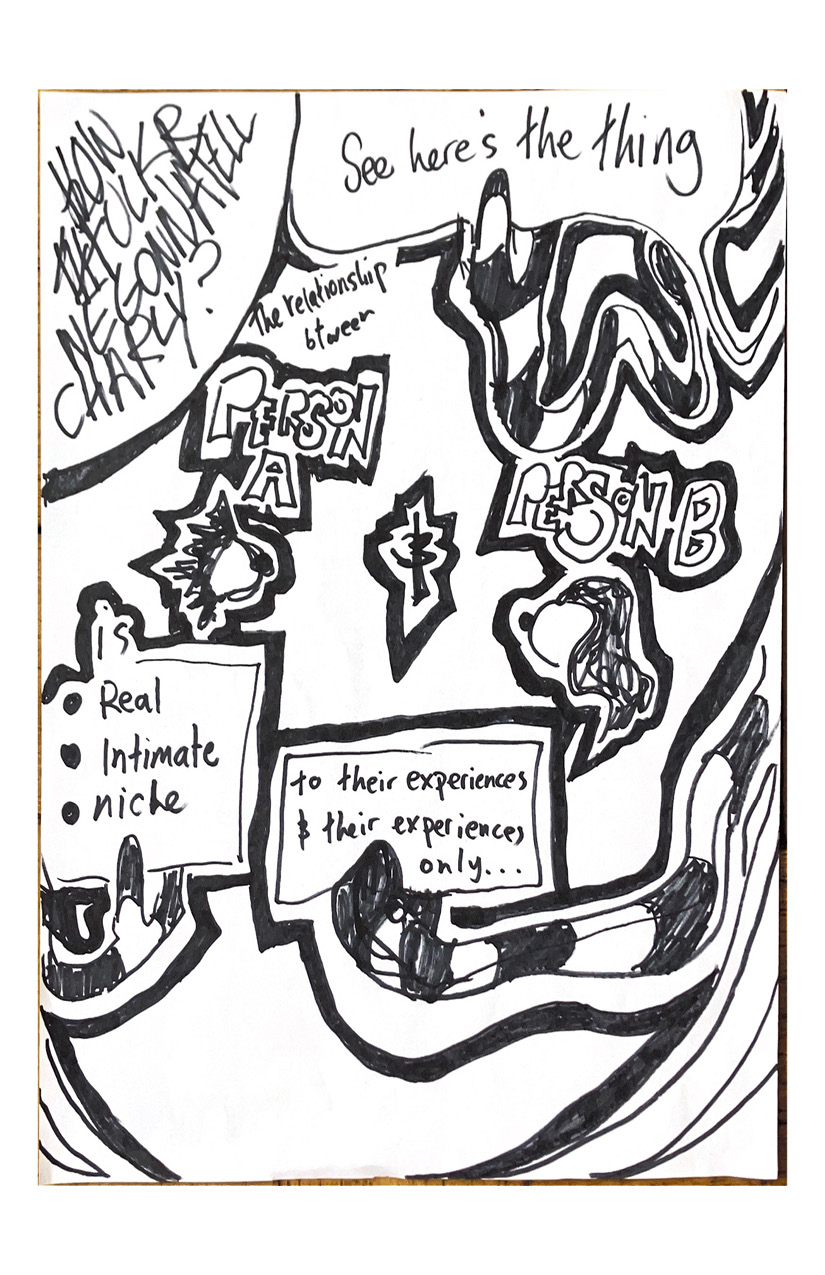 HOW
THE FUCK R
WE GONNA TELL
CHARLY?
See here's the thing
The relationship
btween
PERSON
A
&
PERSON B
is
• Real
• Intimate
• niche
to their experiences
& their experiences
only...